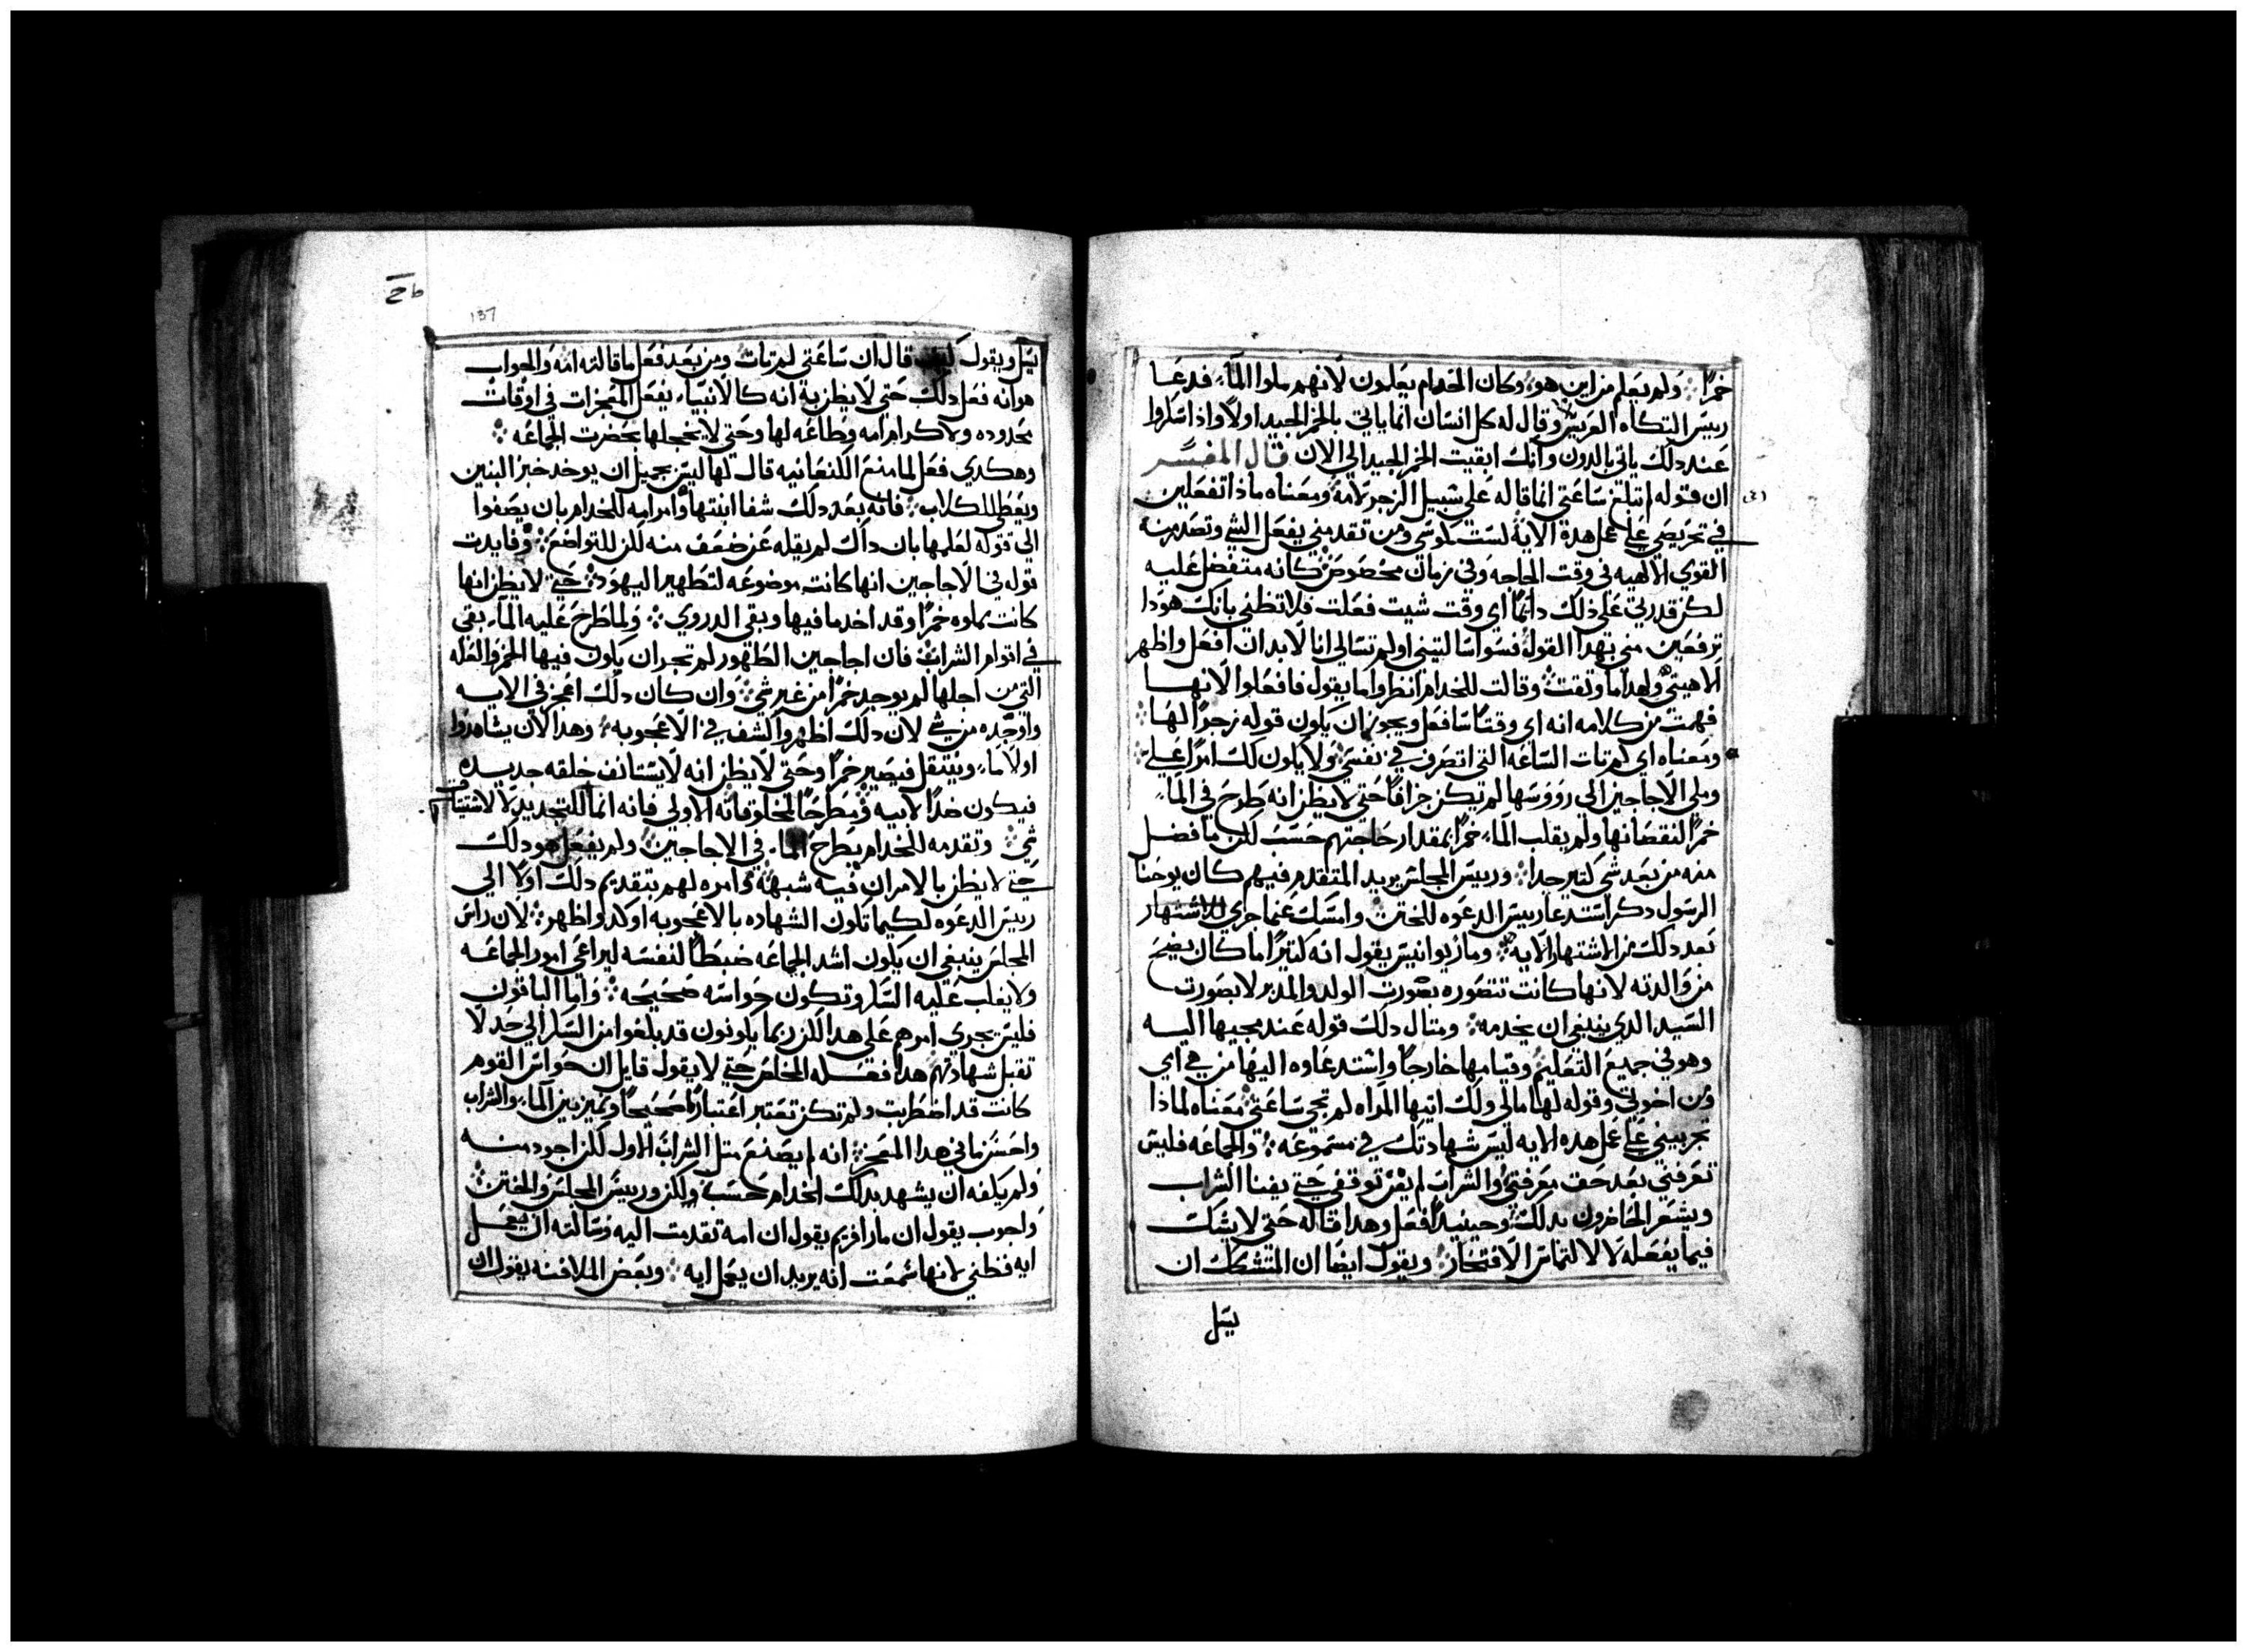 خمرًا ولم يعلم من اين هو وكان الخدام يعلمون لانهم ملوا الماء فدعا
رييس التكاه العريس وقال له كل انسان انما ياتي بالخمر الجيد اولًا واذا سكروا
عند دلك ياتي بالدون وانك ابقيت الخمر الجيد الي الان قال المفسر
ان قوله لم تبلغ ساعتي انما قاله علي سبيل الزجر لامه ومعناه ماذا تفعلين
في تحريضي علي عمل هذة الاية لست كموسي ومن تقدمني يفعل الشي وتصدر منه
القوي الالهيه في وقت الحاجه وفي زمان مخصوص كانه متفضل عليه
لكن قدرتي علي ذلك دايمًا اي وقت شيت فعلت فلا تظني بانك هودا
ترفعين مني بهدا القول فسوا سالتيني او لم تسالي انا لابد ان افعل واظهر
الاهيتي ولهدا ما وثقت وقالت للخدام انظروا ما يقول فافعلوا لانها
فهمت من كلامه انه اي وقتًا شا فعل ويجوز ان يكون قوله زجرًا لها
ومعناه اي لم تات الساعه التي اتصرف في نفسي ولا يكون لك امرًا علي
وملي الاجاجين الي رووسها لم تكن جزافًا حتي لا يظن انه طرح في الماء
خمرًا لنقصانها ولم يقلب الماء خمرًا بمقدار حاجتهم حسب لكن ما فضل
منه من بعد شي كتير جدا ورييس المجلس يريد المتقدم فيهم كان يوحنا
الرسول دكر استدعا رييس الدعوه للختن وامسك عنما جري للاشتهار
بعد دلك من اشتهار الايه ومار يوانيس يقول انه كتيرًا ما كان يضج
من والدته لانها كانت تتصوره بصورت الولد والمدبر لا بصورت
السيد الدي ينبغي ان يخدمه ومتال دلك قوله عند مجيها اليه
وهو في جميع التعليم وقيامها خارجًا واستدعاوه اليها من هي اي
ومن اخوتي وقوله لها مالي ولك ايتها المراه لم تجي ساعتي معناه لماذا
تجربيني علي عمل هده الايه ليس شهادتك في مسموعه والجماعه فليس
تعرفني بعد حق معرفتي والشراب لم يفن توقفي حتي يفنا الشراب
ويشعر الحاضرون بدلك وحينيد افعل وهدا قاله حتي لا يشك
فيما يفعله لا لالتماس الافتخار ويقول ايضًا ان المتشكك ان
يسل
137
يسل ويقول كيف قال ان ساعتي لم تات ومن بعد فعل ما قالته امه والجواب
هو انه فعل دلك حتي لا يظن به انه كالانبياء يفعل المعجزات في اوقات
محدوده ولاكرام امه وطاعه لها وحتي لا يخجلها بحضرت الجماعه
وهكدي فعل لما منع الكنعانيه قال لها ليس بجميل ان يوخد خبز البنين
ويعطي للكلاب فانه بعد دلك شفا ابنتها وامر امه للخدام بان يصغوا
الي قوله لعلمها بان داك لم يقله عن ضعف منه لكن للتواضع وفايدت
قوله في الاجاجين انها كانت موضوعه لتطهير اليهود حتي لا يظن انها
كانت مملوه خمرًا وقد اخد ما فيها وبقي الدروي ولما طرح عليه الماء بقي
في اقوام الشراب فان اجاجين الطهور لم تجر ان يكون فيها الخمر والعله
التي من اجلها لم يوجد خمرًا من غير شي وان كان دلك اعجز في الايه
واوجده من شي لان دلك اظهر واكشف في الاعجوبه وهدا لان يشاهدوا
اولًا ماء وينتقل فيصير خمرًا وحتي لا يظن انه لا يستانف خلقه جديده
فيكون ضدًا لابيه ومطرحًا لمخلوقاته الاولي فانه انما للتجديد لا لاشتياق
شي وتقدمه للخدام بطرح الماء في الاجاجين ولم يفعل هو دلك
حتي لا يظن بالامر ان فيه شبهه وامره لهم بتقديم دلك اولًا الي
رييس الدعوه لكيما تكون الشهاده بالاعجوبه اوكد واظهر لان راس
المجلس ينبغي ان يكون اشد الجماعه ضبطًا لنفسه ليراعي امور الجماعه
ولا يغلب عليه السكر وتكون حواسه صحيحه واما الباقون
فليس يجري امرهم علي هدا لكن ربما يكونون قد بلغوا من السكر الي حد لا
تقبل شهادتهم هدا فعله المخلص حتي لا يقول قايل ان حواس القوم
كانت قد اضطربت ولم تكن تعتبر اعتبارًا صحيحًا وتميز بين الماء والشراب
واحسن ما في هدا المعجز انه لم يصنع متل الشراب الاول لكن اجود منه
ولم يكفه ان يشهد بدلك الخدام حسب ولكن ورييس المجلس والختن
واجوب يقول ان مار افريم يقول ان امه تقدمت اليه وسالته ان يعمل
ايه فطني لانها سمعت انه يريد ان يعمل ايه وبعض الملافنه يقول ان